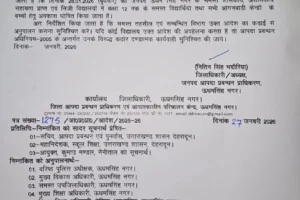 किया जाता है कि दिनांक 28.01.2026 (बुधवार) को जनपद ऊधम सिंह नगर के समस्त शासकीय,
सहायता प्राप्त एवं निजी विद्यालयों में कक्षा 12 तक के समस्त विद्यार्थियों तथा सभी आंगनबाड़ी केन्द्रों के
बच्चों हेतु अवकाश घोषित किया जाता है।
अतः निर्देशित किया जाता है कि समस्त तहसील एवं सम्बन्धित विभाग उक्त आदेश का कड़ाई से
अनुपालन कराना सुनिश्चित करें। यदि कोई विद्यालय उक्त आदेश की अवहेलना करता है तो आपदा प्रबन्धन
अधिनियम-2005 के अन्तर्गत उनके विरूद्ध कठोर दण्डात्मक कार्यवाही सुनिश्चित की जाये।
दिनांक- जनवरी, 2026
(नितिन सिंह भदौरिया)
जिलाधिकारी/अध्यक्ष,
जनपद आपदा प्रबन्धन प्राधिकरण,
ऊधमसिंह नगर।
कार्यालय जिलाधिकारी, ऊधमसिंह नगर।
जिला आपदा प्रबन्धन प्राधिकरण एवं आपातकालीन परिचालन केन्द्र, ऊधमसिंह नगर।
पत्र संख्या- 1275 /आ0प्र0प्रा0/आदेश/2025-26 दिनांक 27 जनवरी 2026
प्रतिलिपि-निम्नांकित को सादर सूचनार्थ प्रेषित-
01-सचिव, आपदा प्रबन्धन एवं पुनर्वास, उत्तराखण्ड शासन, देहरादून।
02-महानिदेशक, स्कूल शिक्षा, उत्तराखण्ड शासन, देहरादून।
03-आयुक्त, कुमाऊं मण्डल, नैनीताल को सूचनार्थ।
निम्नांकित को अनुपालनार्थ-
01. वरिष्ठ पुलिस अधीक्षक, ऊधमसिंह नगर।
02. मुख्य विकास अधिकारी, ऊधमसिंह नगर।
03. समस्त उपजिलाधिकारी, ऊधमसिंह नगर।
04. मुख्य शिक्षा अधिकारी, ऊधमसिंह नगर।